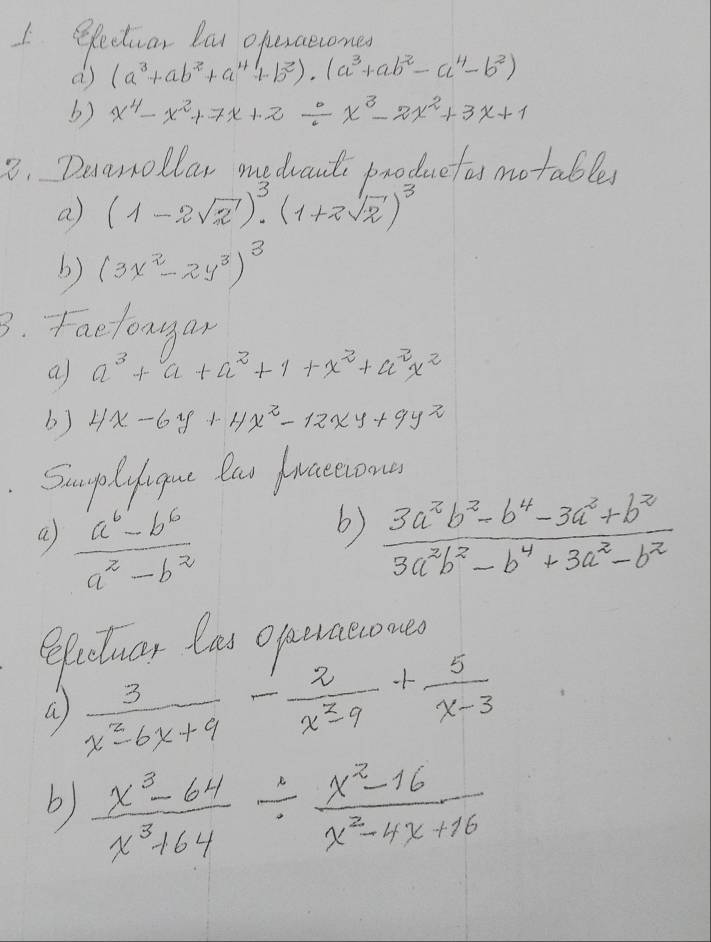 1 Efectuar las operaciones
a) (a³+ab²+a⁴+b²).(a³+ab²-a⁴-b²)
b) x⁴-x²+7x+2 ÷ x³-2x²+3x+1
2. Desarrollar mediante productos notables
a) (1-2√2)³.(1+2√2)³
b) (3x²-2y³)³
3. Factorizar
a) a³+a+a²+1+x²+a²x²
b) 4x-6y+4x²-12xy+9y²
. Simplifique las fracciones
a) (a⁶-b⁶)/(a²-b²) b) (3a²b²-b⁴-3a²+b²)/(3a²b²-b⁴+3a²-b²)
. Efectuar las operaciones
a) 3/(x²-6x+9) - 2/(x²-9) + 5/(x-3)
b) (x³-64)/(x³+64) ÷ (x²-16)/(x²-4x+16)